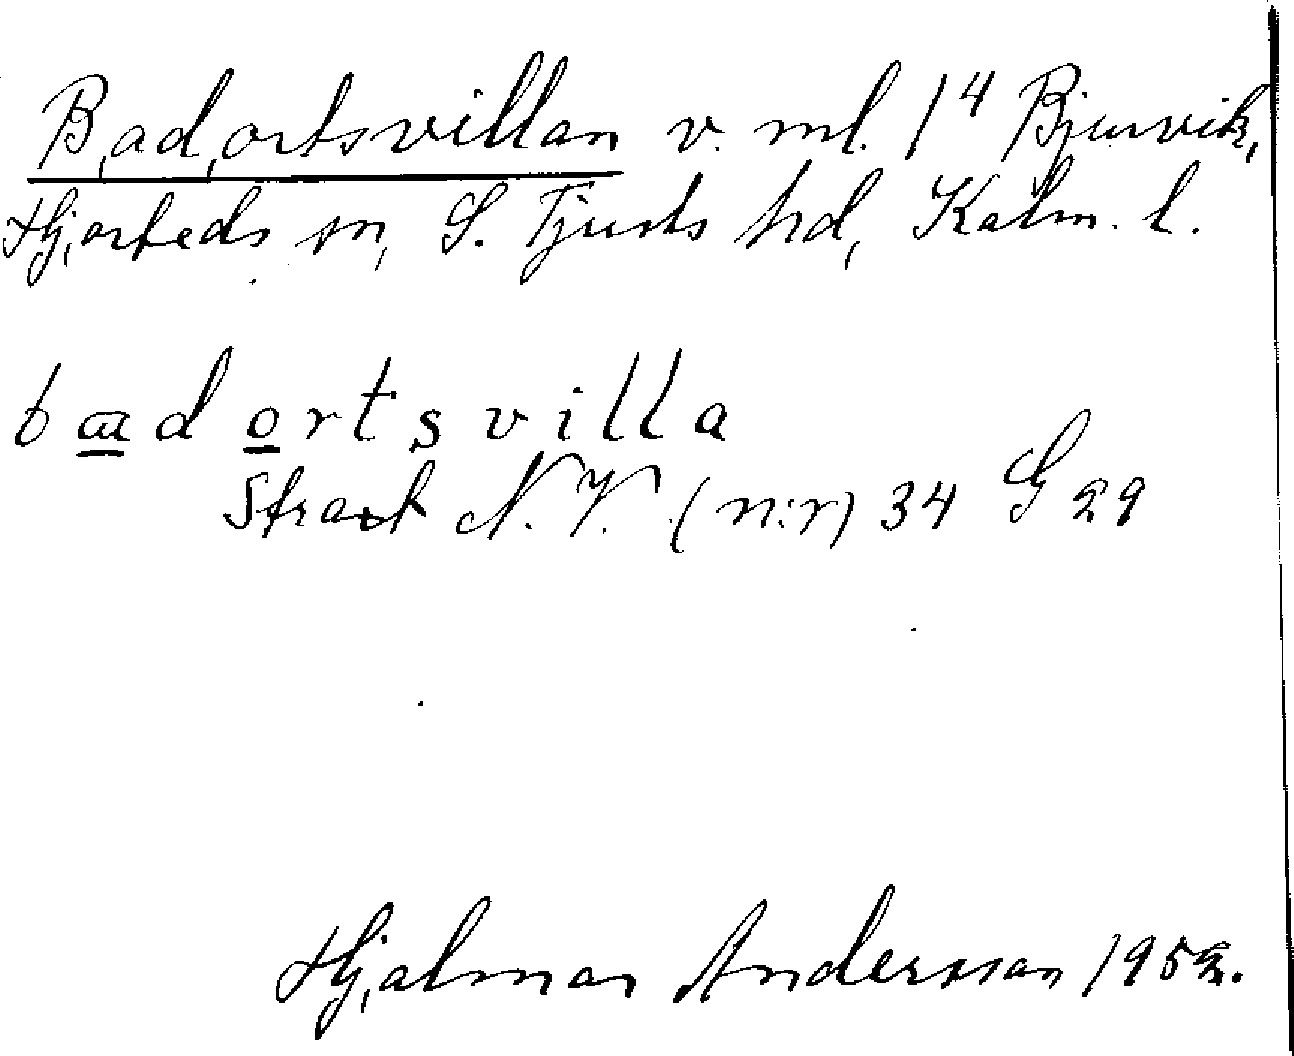 Badortsvillan v. ml. 1⁴ Bjursvik,
Hjorteds sn, S. Tjusts hd, Kalm. l.
badortsvilla
Strax N.V. (n:r) 34 G 29
Hjalmar Andersson 1952.